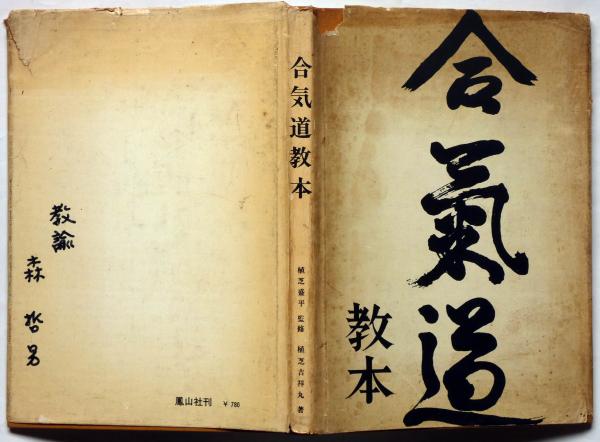 合氣道
教本
合気道教本
植芝盛平 監修 植芝吉祥丸 著
教諭
森 哲男
鳳山社刊 ¥ 780